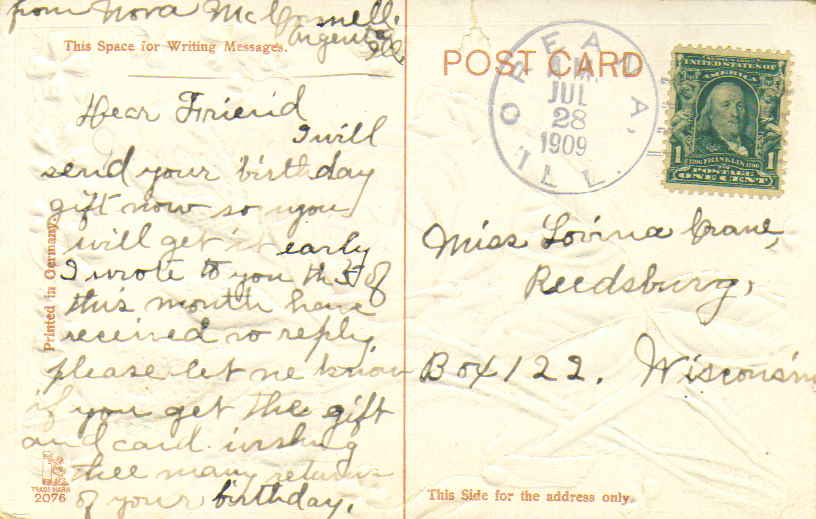 from Nora McConnell.
Argenta
Ills
This Space for Writing Messages.
Dear Friend
I will
send your birthday
gift now so you
will get it early
I wrote to you the 5 of
this month have
received no reply
please let me know
if you get the gift
and card wishing
thee many returns
of your birthday.
Printed in Germany.
TRADE MARK
2076
POST CARD
OREANA, ILL.
JUL
28
1909
UNITED STATES OF
AMERICA
1 FRANKLIN 1
POSTAGE
ONE CENT
Miss Lovina Crane,
Reedsburg,
Box 122. Wisconsin
This Side for the address only.